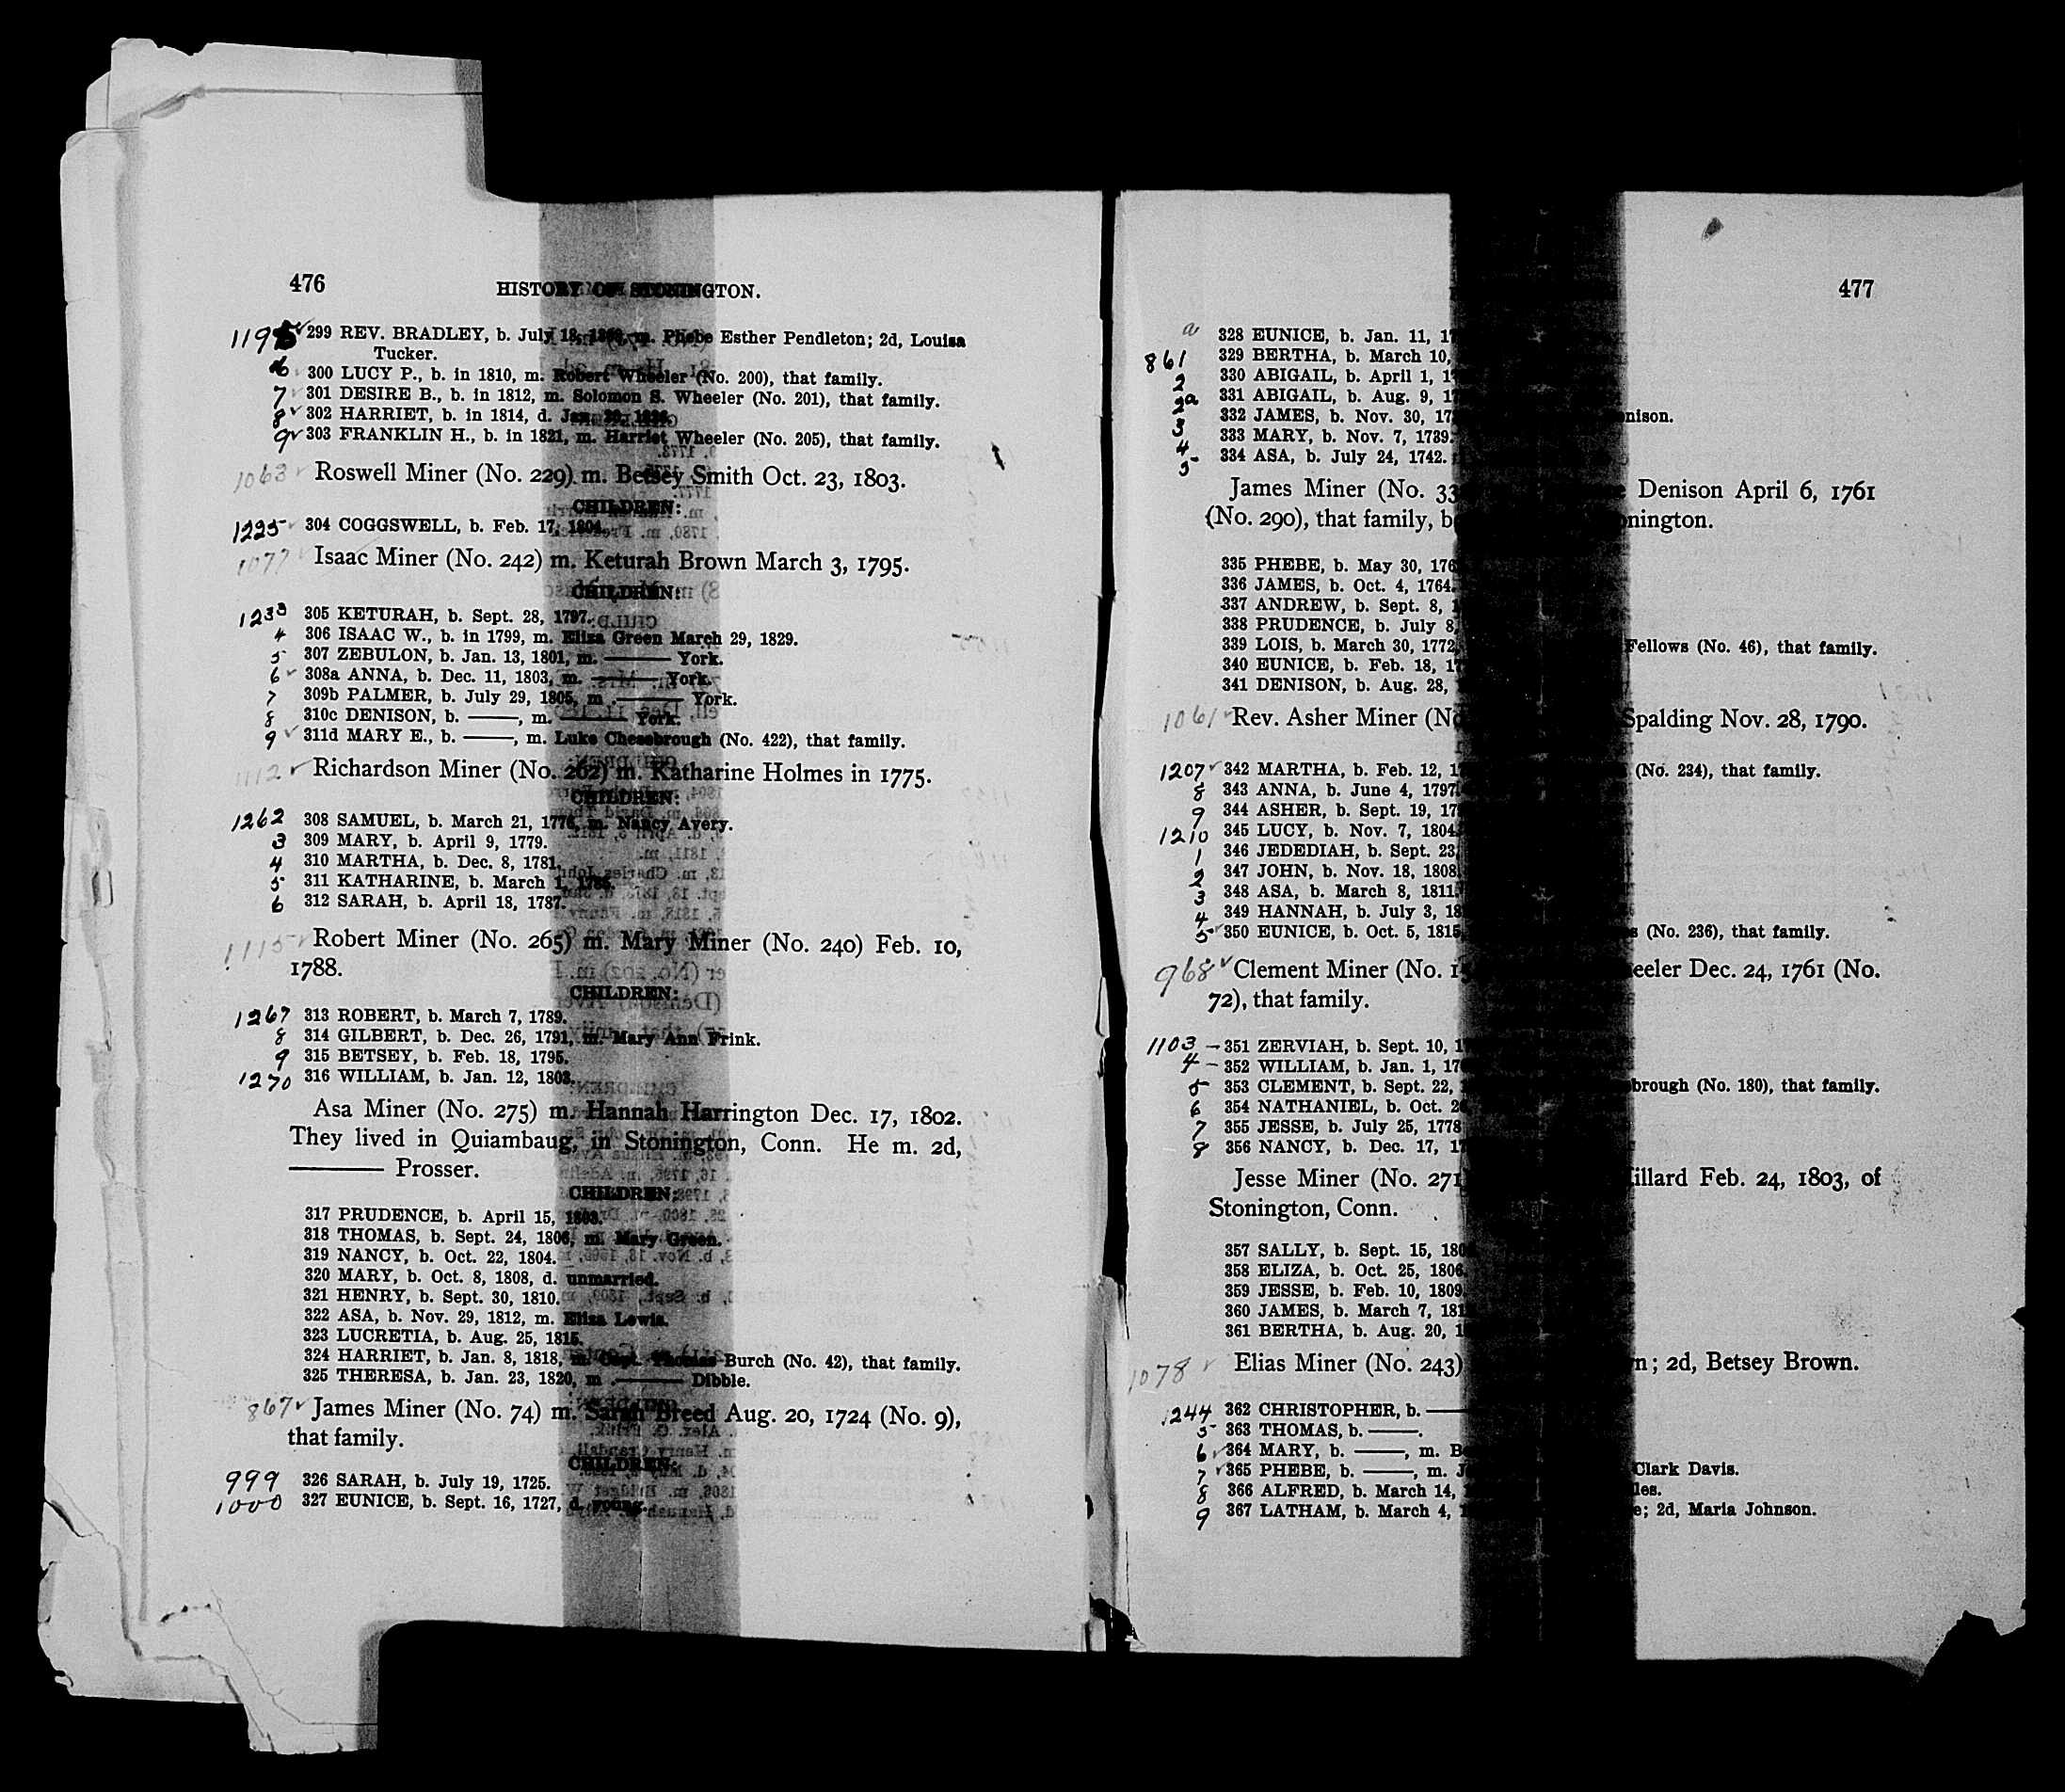 476
HISTORY OF STONINGTON.
1195 299 REV. BRADLEY, b. July 18, m. Phebe Esther Pendleton; 2d, Louisa
Tucker.
6 300 LUCY P., b. in 1810, m. Robert Wheeler (No. 200), that family.
7 301 DESIRE B., b. in 1812, m. Solomon S. Wheeler (No. 201), that family.
8 302 HARRIET, b. in 1814, d. Jan.
9 303 FRANKLIN H., b. in 1821, m. Harriet Wheeler (No. 205), that family.
1063 Roswell Miner (No. 229) m. Betsey Smith Oct. 23, 1803.
CHILDREN:
1225 304 COGGSWELL, b. Feb. 17, 1804.
1077 Isaac Miner (No. 242) m. Keturah Brown March 3, 1795.
CHILDREN:
1233 305 KETURAH, b. Sept. 28, 1797.
4 306 ISAAC W., b. in 1799, m. Eliza Green March 29, 1829.
5 307 ZEBULON, b. Jan. 13, 1801, m. ——— York.
6 308a ANNA, b. Dec. 11, 1803, m. ——— York.
7 309b PALMER, b. July 29, 1805, m. ——— York.
8 310c DENISON, b. ———, m. ——— York.
9 311d MARY E., b. ———, m. Luke Chesebrough (No. 422), that family.
1112 Richardson Miner (No. 262) m. Katharine Holmes in 1775.
CHILDREN:
1262 308 SAMUEL, b. March 21, 1776, m. Nancy Avery.
3 309 MARY, b. April 9, 1779.
4 310 MARTHA, b. Dec. 8, 1781.
5 311 KATHARINE, b. March 1, 1785.
6 312 SARAH, b. April 18, 1787.
1115 Robert Miner (No. 265) m. Mary Miner (No. 240) Feb. 10,
1788.
CHILDREN:
1267 313 ROBERT, b. March 7, 1789.
8 314 GILBERT, b. Dec. 26, 1791, m. Mary Ann Frink.
9 315 BETSEY, b. Feb. 18, 1795.
1270 316 WILLIAM, b. Jan. 12, 1803.
Asa Miner (No. 275) m. Hannah Harrington Dec. 17, 1802.
They lived in Quiambaug, in Stonington, Conn. He m. 2d,
——— Prosser.
CHILDREN:
317 PRUDENCE, b. April 15, 1803.
318 THOMAS, b. Sept. 24, 1806, m. Mary Green.
319 NANCY, b. Oct. 22, 1804.
320 MARY, b. Oct. 8, 1808, d. unmarried.
321 HENRY, b. Sept. 30, 1810.
322 ASA, b. Nov. 29, 1812, m. Eliza Lewis.
323 LUCRETIA, b. Aug. 25, 1815.
324 HARRIET, b. Jan. 8, 1818, m. Capt. Thomas Burch (No. 42), that family.
325 THERESA, b. Jan. 23, 1820, m. ——— Dibble.
867 James Miner (No. 74) m. Sarah Breed Aug. 20, 1724 (No. 9),
that family.
CHILDREN:
999 326 SARAH, b. July 19, 1725.
1000 327 EUNICE, b. Sept. 16, 1727, d. young.
477
a 328 EUNICE, b. Jan. 11, 1
861 329 BERTHA, b. March 10,
2 330 ABIGAIL, b. April 1, 1
2a 331 ABIGAIL, b. Aug. 9, 1
3 332 JAMES, b. Nov. 30, 17 nison.
4 333 MARY, b. Nov. 7, 1739.
5 334 ASA, b. July 24, 1742.
James Miner (No. 33 Denison April 6, 1761
(No. 290), that family, b onington.
335 PHEBE, b. May 30, 176
336 JAMES, b. Oct. 4, 1764.
337 ANDREW, b. Sept. 8,
338 PRUDENCE, b. July 8,
339 LOIS, b. March 30, 1772, Fellows (No. 46), that family.
340 EUNICE, b. Feb. 18, 17
341 DENISON, b. Aug. 28,
1061 Rev. Asher Miner (N Spalding Nov. 28, 1790.
1207 342 MARTHA, b. Feb. 12, 1 (No. 234), that family.
8 343 ANNA, b. June 4, 1797.
9 344 ASHER, b. Sept. 19, 17
1210 345 LUCY, b. Nov. 7, 1804.
1 346 JEDEDIAH, b. Sept. 23,
2 347 JOHN, b. Nov. 18, 1808.
3 348 ASA, b. March 8, 1811.
4 349 HANNAH, b. July 3, 18
5 350 EUNICE, b. Oct. 5, 1815, s (No. 236), that family.
968 Clement Miner (No. 1 eeler Dec. 24, 1761 (No.
72), that family.
1103 351 ZERVIAH, b. Sept. 10, 1
4 352 WILLIAM, b. Jan. 1, 17
5 353 CLEMENT, b. Sept. 22, brough (No. 180), that family.
6 354 NATHANIEL, b. Oct. 2
7 355 JESSE, b. July 25, 1778
8 356 NANCY, b. Dec. 17, 1
Jesse Miner (No. 271 illard Feb. 24, 1803, of
Stonington, Conn.
357 SALLY, b. Sept. 15, 180
358 ELIZA, b. Oct. 25, 1806.
359 JESSE, b. Feb. 10, 1809
360 JAMES, b. March 7, 181
361 BERTHA, b. Aug. 20, 1
1078 Elias Miner (No. 243) n; 2d, Betsey Brown.
1244 362 CHRISTOPHER, b. ———
5 363 THOMAS, b. ———.
6 364 MARY, b. ———, m. B
7 365 PHEBE, b. ———, m. J Clark Davis.
8 366 ALFRED, b. March 14, les.
9 367 LATHAM, b. March 4, e; 2d, Maria Johnson.